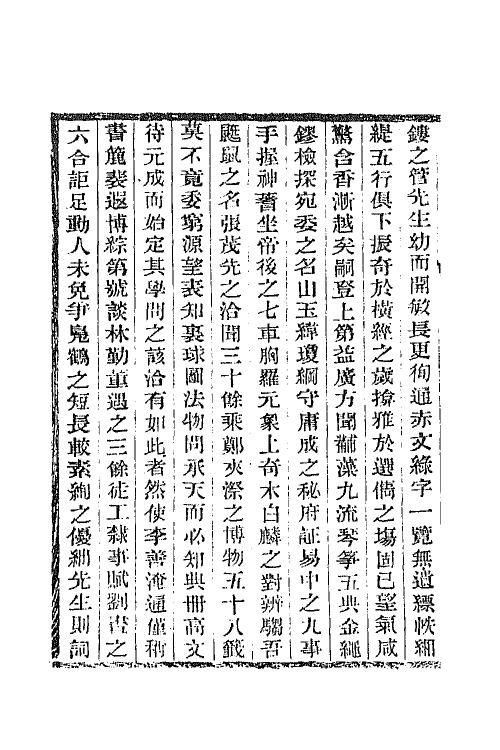 鏤之管先生幼而開敏長更徇通赤文綠字一覽無遺縹帙緗
緹五行俱下振奇於橫經之歲掞雅於選儁之場固已望氣咸
驚含香漸越矣嗣登上第益廣方聞黼藻九流琴箏五典金繩
鏐檢探宛委之名山玉緯瓊綱守庸成之秘府証易中之九事
手握神蓍坐帝後之七車胸羅元象上奇木白麟之對辨騶吾
鼮鼠之名張茂先之洽聞三十餘乘鄭夾漈之博物五十八籤
莫不竟委窮源望表知裏球圖法物問承天而必知典冊高文
待元成而始定其學問之該洽有如此者然使李善淹通僅稱
書簏裴遐博綜第號談林勤董遇之三餘徒工隸事賦劉晝之
六合詎足動人未免爭鳧鶴之短長較素絢之優絀先生則詞